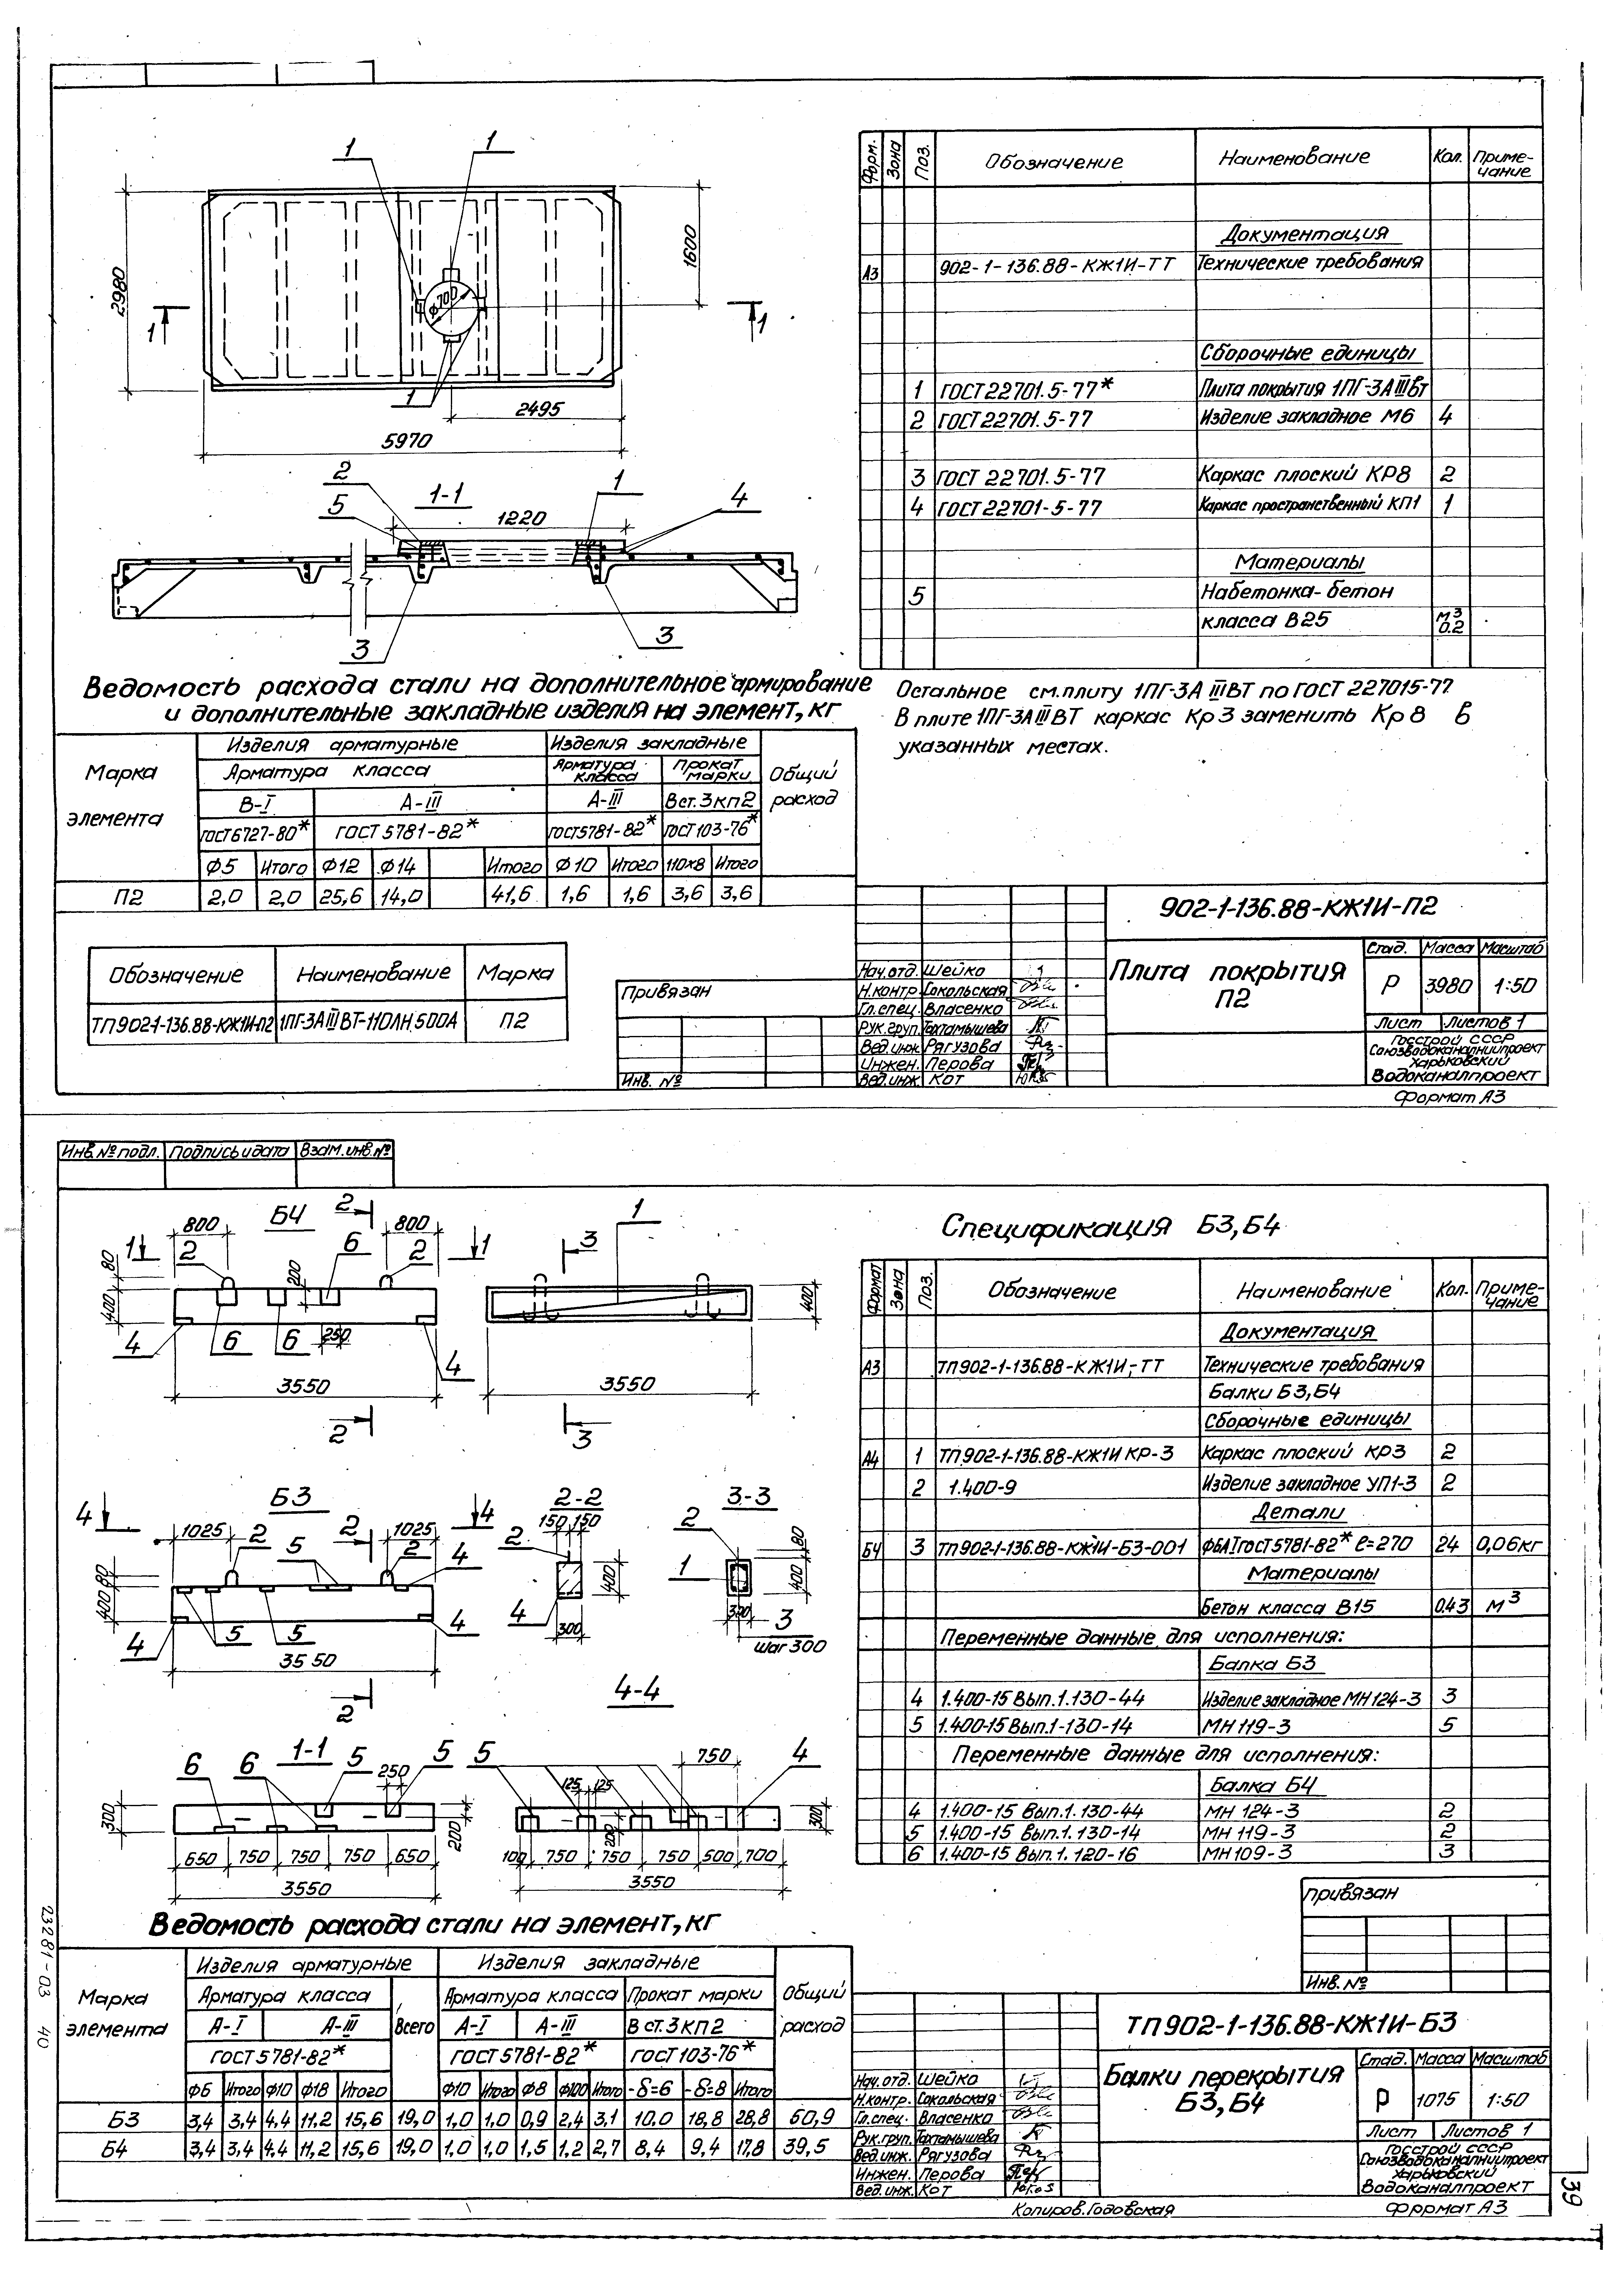 1
1
2980
1600
ϕ700
1
1
1
2495
5970
2
1-1
1
4
5
1220
3
3
Форм. Зона Поз. Обозначение Наименование Кол. Приме-чание
Документация
А3 902-1-136.88-КЖ1И-ТТ Технические требования
Сборочные единицы
1 ГОСТ 22701.5-77* Плита покрытия 1ПГ-3АIIIВт
2 ГОСТ 22701.5-77 Изделие закладное М6 4
3 ГОСТ 22701.5-77 Каркас плоский КР8 2
4 ГОСТ 22701-5-77 Каркас пространственный КП1 1
Материалы
5 Набетонка-бетон
класса В25 м3 0.2
Остальное см.плиту 1ПГ-3А III ВТ по ГОСТ 227015-77
В плите 1ПГ-3А III ВТ каркас Кр3 заменить Кр8 в
указанных местах.
Ведомость расхода стали на дополнительное армирование
и дополнительные закладные изделия на элемент, кг
Марка элемента
Изделия арматурные Изделия закладные Общий расход
Арматура класса Арматура класса Прокат марки
В-I А-III А-III Вст.3кп2
ГОСТ6727-80* ГОСТ 5781-82* ГОСТ5781-82* ГОСТ103-76*
Ф5 Итого Ф12 Ф14 Итого Ф10 Итого 110х8 Итого
П2 2,0 2,0 25,6 14,0 41,6 1,6 1,6 3,6 3,6
Обозначение Наименование Марка
ТП902-1-136.88-КЖ1И-П2 1ПГ-3АIIIВТ-110ЛН,500А П2
Привязан
Инв. №
902-1-136.88-КЖ1И-П2
Плита покрытия
П2
Стад. Масса Масштаб
Р 3980 1:50
Лист Листов 1
Госстрой СССР
Союзводоканалниипроект
Харьковский
Водоканалпроект
Нач.отд. Шейко
Н.контр. Сокольская
Гл.спец. Власенко
Рук.груп. Тохтамышева
Вед.инж. Рягузова
Инжен. Перова
Вед.инж. Кот
Формат А3
Инв.№ подл. Подпись и дата Взам.инв.№
Б4
2
800
800
1
2
6
2
1
80
200
400
4
6
6
250
4
3550
2
1
3
400
3550
3
Б3
4
1025
2
5
2
1025
4
2
4
80
400
4
5
5
4
3550
2
2-2
150 150
2
400
4
300
3-3
2
80
1
400
300
3
шаг 300
1-1
6
6
5
250
5
300
200
650 750 750 750 650
3550
4-4
5
750
4
125 125
200
300
100 750 750 750 500 700
3550
Спецификация Б3,Б4
Формат Зона Поз. Обозначение Наименование Кол. Приме-чание
Документация
А3 ТП902-1-136.88-КЖ1И-ТТ Технические требования
Балки Б3,Б4
Сборочные единицы
А4 1 ТП902-1-136.88-КЖ1И КР-3 Каркас плоский КР3 2
2 1.400-9 Изделие закладное УП1-3 2
Детали
Б4 3 ТП902-1-136.88-КЖ1И-Б3-001 Ф6АIГОСТ5781-82* ℓ=270 24 0,06кг
Материалы
Бетон класса В15 0.43 м3
Переменные данные для исполнения:
Балка Б3
4 1.400-15 Вып.1.130-44 Изделие закладное МН124-3 3
5 1.400-15 Вып.1-130-14 МН119-3 5
Переменные данные для исполнения:
Балка Б4
4 1.400-15 Вып.1.130-44 МН 124-3 2
5 1.400-15 Вып.1.130-14 МН 119-3 2
6 1.400-15 Вып.1.120-16 МН109-3 3
Ведомость расхода стали на элемент, кг
Марка элемента
Изделия арматурные Изделия закладные Общий расход
Арматура класса Всего Арматура класса Прокат марки
А-I А-III А-I А-III В ст.3кп2
ГОСТ 5781-82* ГОСТ 5781-82* ГОСТ 103-76*
Ф6 Итого Ф10 Ф18 Итого Ф10 Итого Ф8 Итого -δ=6 -δ=8 Итого
Б3 3,4 3,4 4,4 11,2 15,6 19,0 1,0 1,0 0,9 2,4 3,1 10,0 18,8 28,8 60,9
Б4 3,4 3,4 4,4 11,2 15,6 19,0 1,0 1,0 1,5 1,2 2,7 8,4 9,4 17,8 39,5
привязан
Инв.№
ТП902-1-136.88-КЖ1И-Б3
Балки перекрытия
Б3,Б4
Стад. Масса Масштаб
Р 1075 1:50
Лист Листов 1
Госстрой СССР
Союзводоканалниипроект
Харьковский
Водоканалпроект
Нач.отд. Шейко
Н.контр. Сокольская
Гл.спец. Власенко
Рук.груп. Тохтамышева
Вед.инж. Рягузова
Инжен. Перова
Вед.инж. Кот
Копиров. Годовская
Формат А3
23281-03 40
39